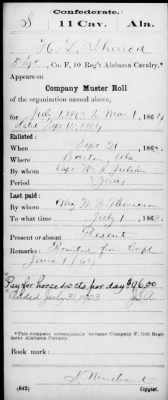 Confederate.
S 11 Cav. Ala.
Sgt., Co. F, 10 Reg't Alabama Cavalry.*
Appears on
Company Muster Roll
of the organization named above,
for July 1, 1863 to Mar 1, 1864
dated Sept 15, 1864
Enlisted:
When Sept 21, 186
Where Ala
By whom Capt W R Julian
Period 3 years
Last paid:
By whom Maj W B Thomason
To what time July 1, 1863
Present or absent Present
Remarks: Capt
June 1/64
Pay for horse 40 cts per day $96.00
ended July 31, 1863
*This company subsequently became Company F, 11th Regiment Alabama Cavalry.
Book mark:
(642) Copyist.